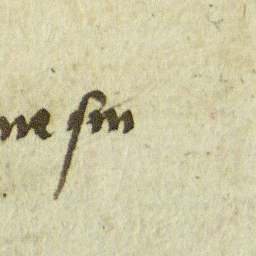 ne sin